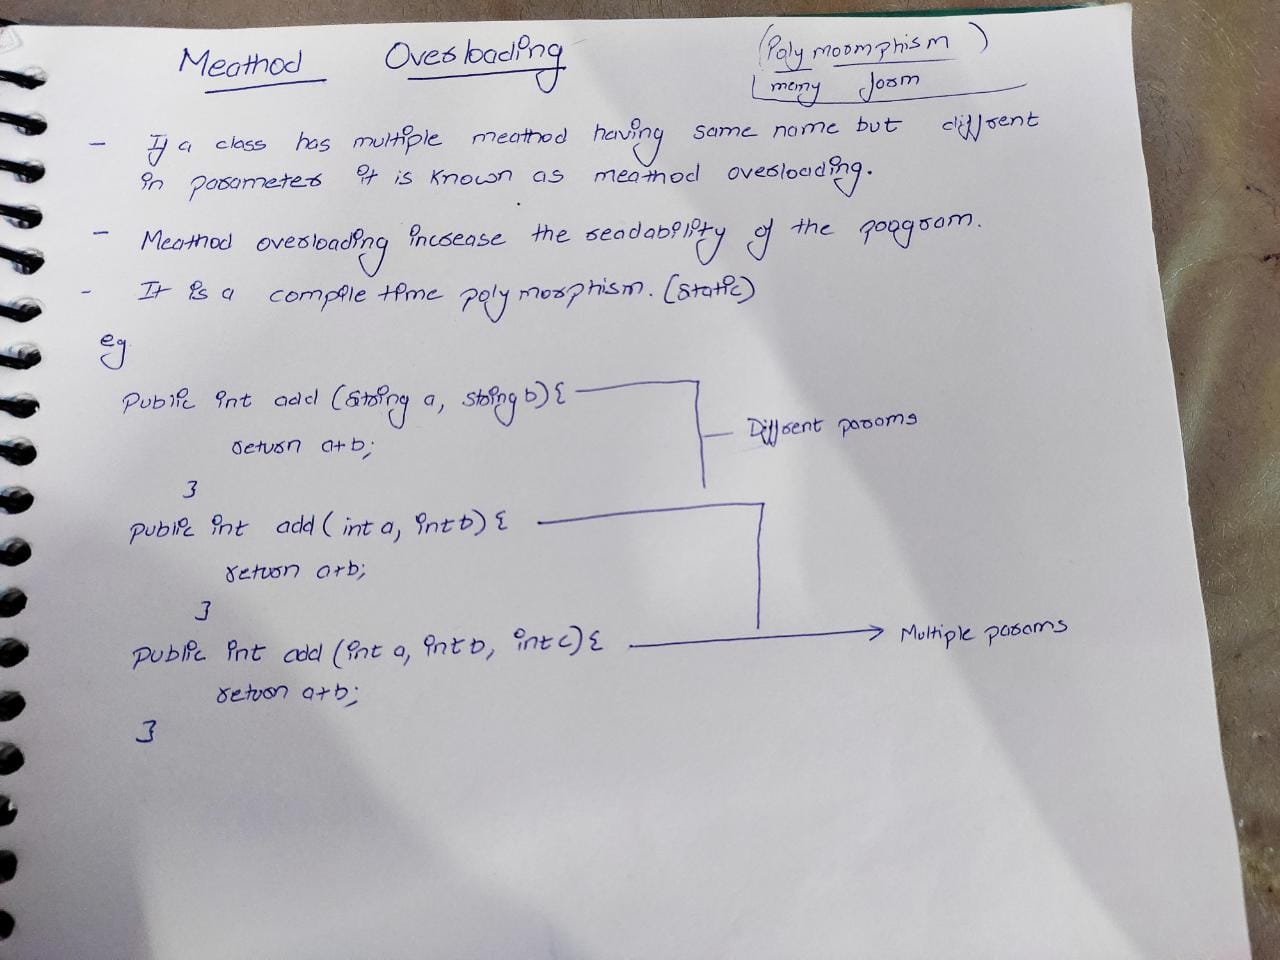 Meathod Overloading (Polymoorphism)
meny form
- If a class has multiple meathod having same name but diffrent
in parameter it is known as meathod overloading.
- Meathod overloading increase the readability of the program.
- It is a compile time polymorphism. (Static)
eg.
public int add (String a, string b) {
return a+b;
}
Diffrent params
public int add ( int a, int b) {
return a+b;
}
public int add (int a, int b, int c) {
Multiple params
return a+b;
}